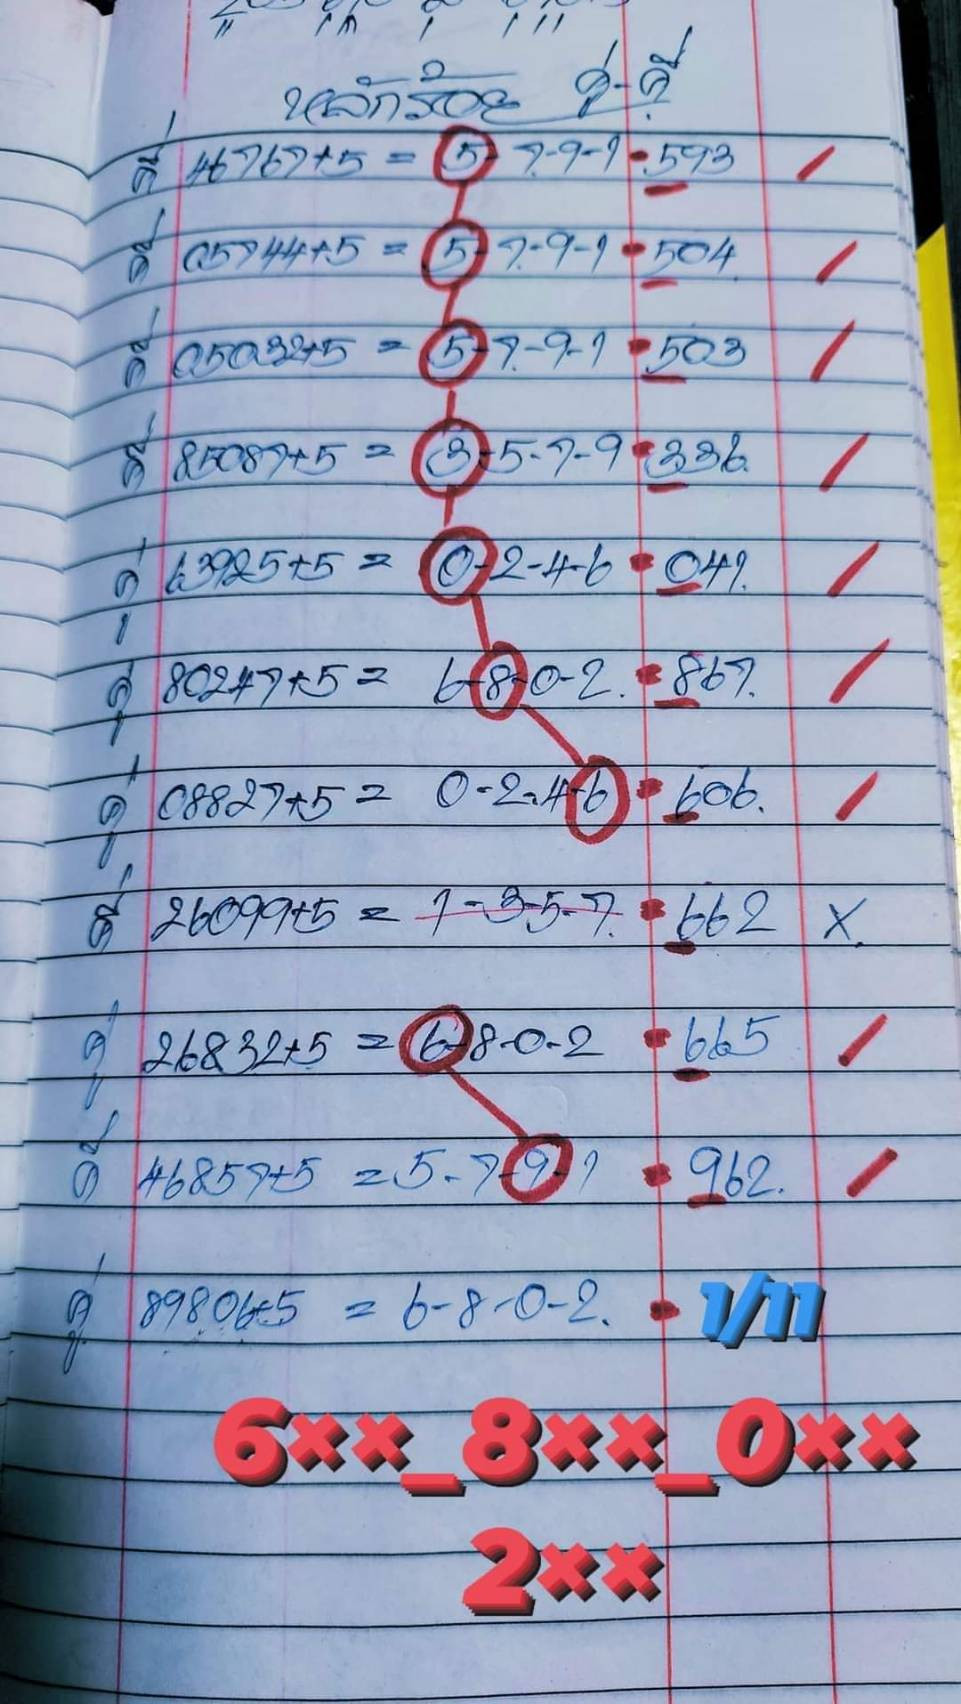 หลักร้อย คู่-คี่
คี่ 46767+5 = 5-7-9-1 • 593 /
คี่ 05744+5 = 5-7-9-1 • 504 /
คี่ 05032+5 = 5-7-9-1 • 503 /
คี่ 85087+5 = 3-5-7-9 • 336 /
คู่ 63925+5 = 0-2-4-6 • 041. /
คู่ 80247+5 = 6-8-0-2. • 867. /
คู่ 08827+5 = 0-2-4-6 • 606. /
คี่ 26099+5 = 1-3-5-7. • 662 X.
คู่ 26832+5 = 6-8-0-2 • 665 /
คี่ 46857+5 = 5-7-9-1 • 962. /
คู่ 89806+5 = 6-8-0-2. • 1/11
6××_8××_0××
2××